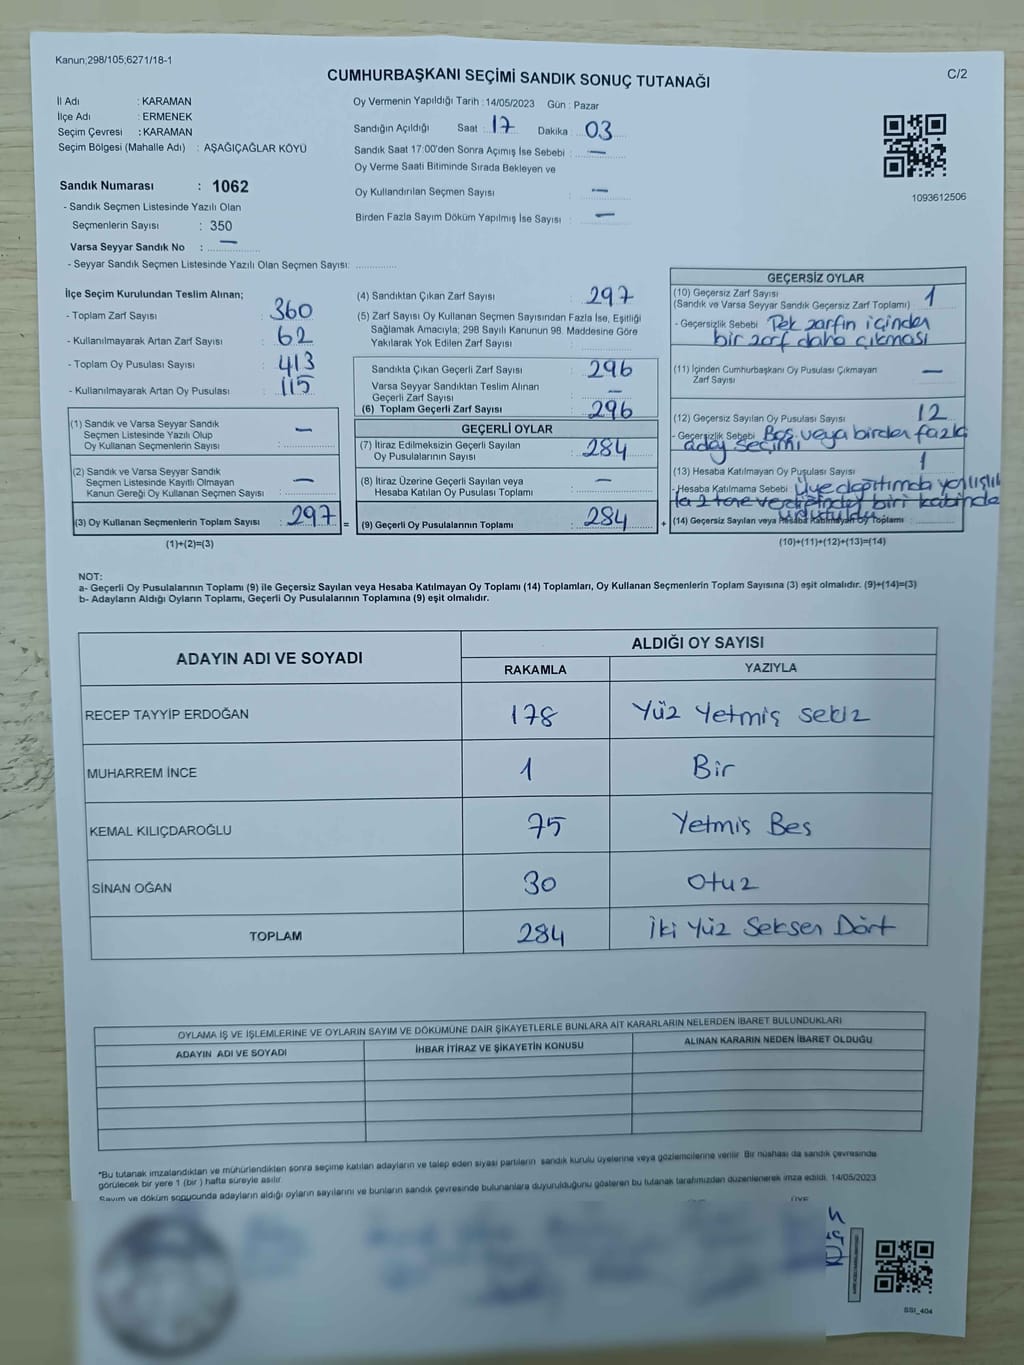 Kanun;298/105;6271/18-1
CUMHURBAŞKANI SEÇİMİ SANDIK SONUÇ TUTANAĞI
C/2
İl Adı : KARAMAN
İlçe Adı : ERMENEK
Seçim Çevresi : KARAMAN
Seçim Bölgesi (Mahalle Adı) : AŞAĞIÇAĞLAR KÖYÜ
Sandık Numarası : 1062
- Sandık Seçmen Listesinde Yazılı Olan
Seçmenlerin Sayısı : 350
Varsa Seyyar Sandık No : —
- Seyyar Sandık Seçmen Listesinde Yazılı Olan Seçmen Sayısı: ..............
Oy Vermenin Yapıldığı Tarih : 14/05/2023 Gün : Pazar
Sandığın Açıldığı Saat : 17 Dakika : 03
Sandık Saat 17:00'den Sonra Açımış İse Sebebi : —
Oy Verme Saati Bitiminde Sırada Bekleyen ve
Oy Kullandırılan Seçmen Sayısı : —
Birden Fazla Sayım Döküm Yapılmış İse Sayısı : —
1093612506
İlçe Seçim Kurulundan Teslim Alınan;
- Toplam Zarf Sayısı : 360
- Kullanılmayarak Artan Zarf Sayısı : 62
- Toplam Oy Pusulası Sayısı : 413
- Kullanılmayarak Artan Oy Pusulası : 115
(1) Sandık ve Varsa Seyyar Sandık
Seçmen Listesinde Yazılı Olup
Oy Kullanan Seçmenlerin Sayısı : —
(2) Sandık ve Varsa Seyyar Sandık
Seçmen Listesinde Kayıtlı Olmayan
Kanun Gereği Oy Kullanan Seçmen Sayısı : —
(3) Oy Kullanan Seçmenlerin Toplam Sayısı : 297 =
(1)+(2)=(3)
(4) Sandıktan Çıkan Zarf Sayısı : 297
(5) Zarf Sayısı Oy Kullanan Seçmen Sayısından Fazla İse, Eşitliği
Sağlamak Amacıyla; 298 Sayılı Kanunun 98. Maddesine Göre
Yakılarak Yok Edilen Zarf Sayısı :
Sandıkta Çıkan Geçerli Zarf Sayısı : 296
Varsa Seyyar Sandıktan Teslim Alınan
Geçerli Zarf Sayısı : —
(6) Toplam Geçerli Zarf Sayısı : 296
GEÇERLİ OYLAR
(7) İtiraz Edilmeksizin Geçerli Sayılan
Oy Pusulalarının Sayısı : 284
(8) İtiraz Üzerine Geçerli Sayılan veya
Hesaba Katılan Oy Pusulası Toplamı : —
(9) Geçerli Oy Pusulalarının Toplamı : 284 +
GEÇERSİZ OYLAR
(10) Geçersiz Zarf Sayısı
(Sandık ve Varsa Seyyar Sandık Geçersiz Zarf Toplamı) : 1
- Geçersizlik Sebebi : Tek zarfın içinden
bir zarf daha çıkması
(11) İçinden Cumhurbaşkanı Oy Pusulası Çıkmayan
Zarf Sayısı : —
(12) Geçersiz Sayılan Oy Pusulası Sayısı : 12
- Geçersizlik Sebebi : Boş veya birden fazla
aday seçimi
(13) Hesaba Katılmayan Oy Pusulası Sayısı : 1
- Hesaba Katılmama Sebebi : Üye dagıtımda yanlışlık
la 2 tane verdiğinden biri kabinde
unutuldu
(14) Geçersiz Sayılan veya Hesaba Katılmayan Oy Toplamı : ..............
(10)+(11)+(12)+(13)=(14)
NOT:
a- Geçerli Oy Pusulalarının Toplamı (9) ile Geçersiz Sayılan veya Hesaba Katılmayan Oy Toplamı (14) Toplamları, Oy Kullanan Seçmenlerin Toplam Sayısına (3) eşit olmalıdır. (9)+(14)=(3)
b- Adayların Aldığı Oyların Toplamı, Geçerli Oy Pusulalarının Toplamına (9) eşit olmalıdır.
ADAYIN ADI VE SOYADI ALDIĞI OY SAYISI
RAKAMLA YAZIYLA
RECEP TAYYİP ERDOĞAN 178 Yüz Yetmiş sekiz
MUHARREM İNCE 1 Bir
KEMAL KILIÇDAROĞLU 75 Yetmiş Beş
SİNAN OĞAN 30 Otuz
TOPLAM 284 İki Yüz Seksen Dört
OYLAMA İŞ VE İŞLEMLERİNE VE OYLARIN SAYIM VE DÖKÜMÜNE DAİR ŞİKAYETLERLE BUNLARA AİT KARARLARIN NELERDEN İBARET BULUNDUKLARI
ADAYIN ADI VE SOYADI İHBAR İTİRAZ VE ŞİKAYETİN KONUSU ALINAN KARARIN NEDEN İBARET OLDUĞU
*Bu tutanak imzalandıktan ve mühürlendikten sonra seçime katılan adayların ve talep eden siyasi partilerin sandık kurulu üyelerine veya gözlemcilerine verilir. Bir nüshası da sandık çevresinde
görülecek bir yere 1 (bir ) hafta süreyle asılır.
Sayım ve döküm sonucunda adayların aldığı oyların sayılarını ve bunların sandık çevresinde bulunanlara duyurulduğunu gösteren bu tutanak tarafımızdan düzenlenerek imza edildi. 14/05/2023
ÜYE
SSI_404